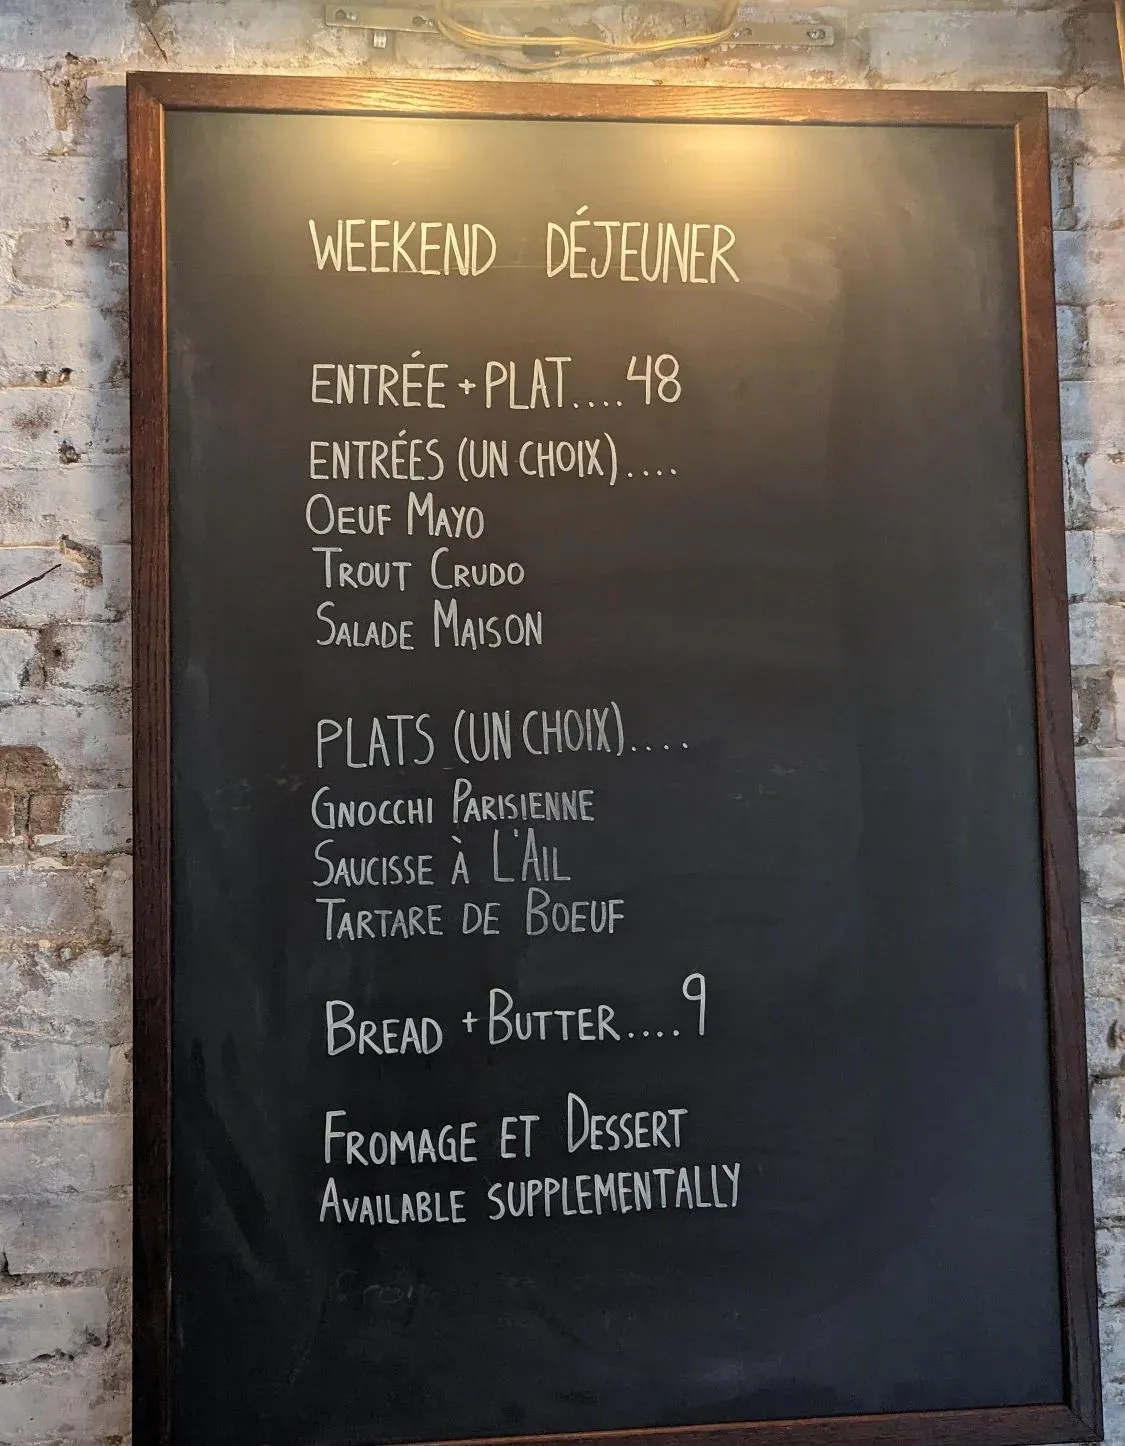 WEEKEND DÉJEUNER
ENTRÉE + PLAT....48
ENTRÉES (UN CHOIX)....
OEUF MAYO
TROUT CRUDO
SALADE MAISON
PLATS (UN CHOIX)....
GNOCCHI PARISIENNE
SAUCISSE À L'AIL
TARTARE DE BOEUF
BREAD + BUTTER....9
FROMAGE ET DESSERT
AVAILABLE SUPPLEMENTALLY